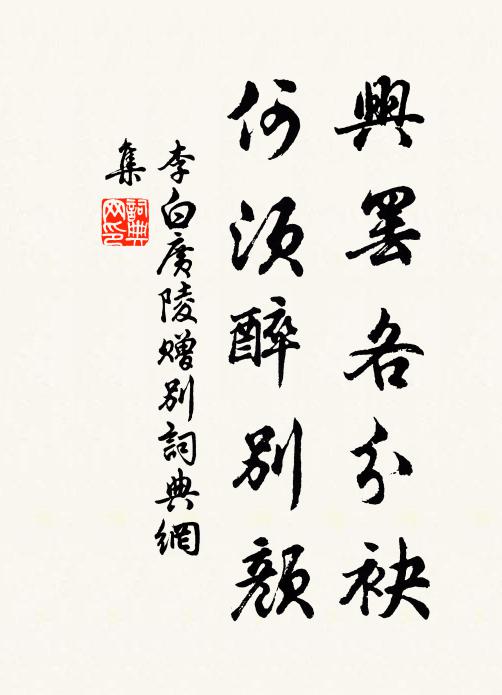 興罷各分袂
何須醉別顏
李白廣陵贈別詞典網
集
詞典網印